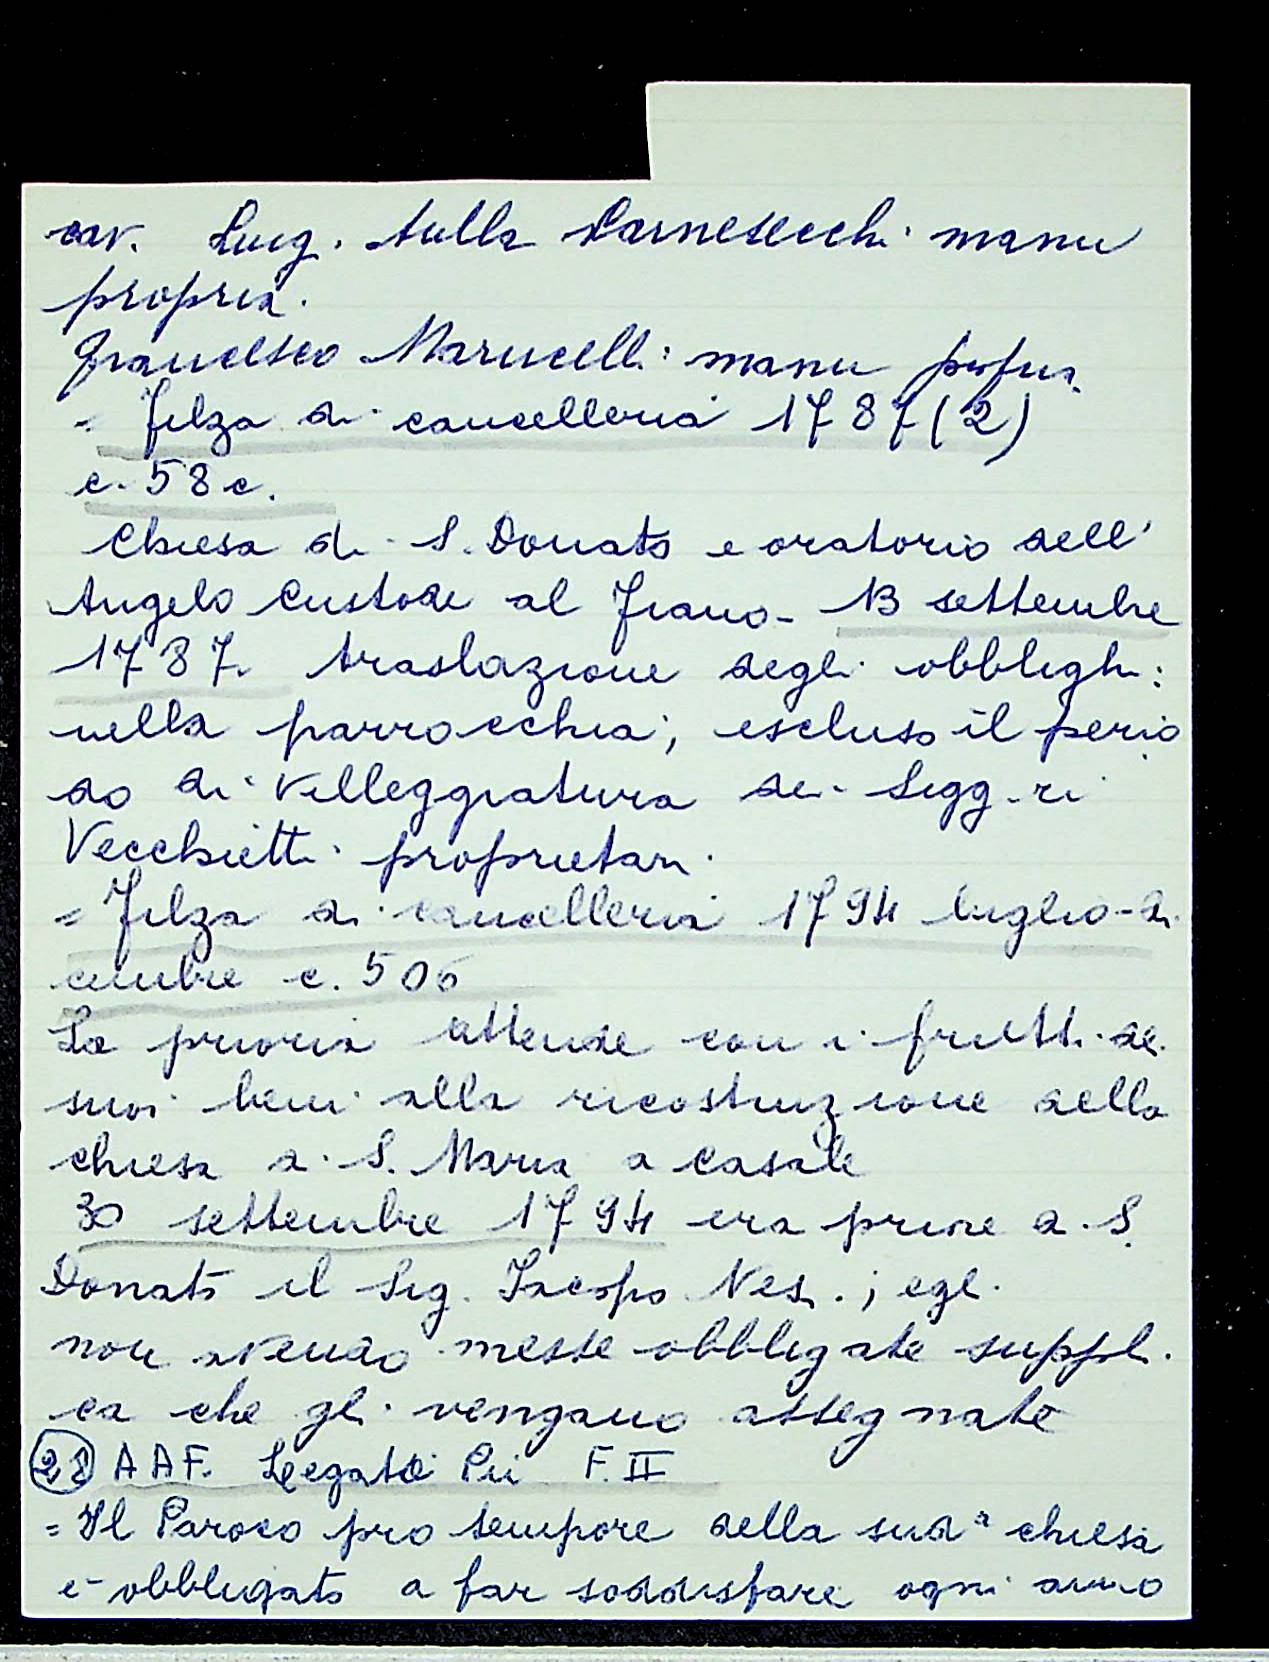 cav. Luig. Sulla Carnesecchi manu
propria.
Francesco Marucelli manu propria
= Filza di cancelleria 1787 (2)
c. 58 c.
Chiesa di S. Donato e oratorio dell'
Angelo Custode al Fiano - 13 settembre
1787. traslazione degli obblighi
nella parrocchia; escluso il perio
do di villeggiatura dei Sigg.ri
Vecchietti proprietari.
= Filza di cancelleria 1794 luglio-di
cembre c. 506
La prioria attende con i frutti de
suoi beni alla ricostruzione della
chiesa a S. Maria a Casale
30 settembre 1794 era priore a S.
Donato il Sig. Jacopo Nesi; egli
non avendo messe obbligate suppli
ca che gli vengano assegnate
(28) AAF. Legati Pii F. II
= Il Paroco pro tempore della sudª chiesa
è obbligato a far soddisfare ogni anno